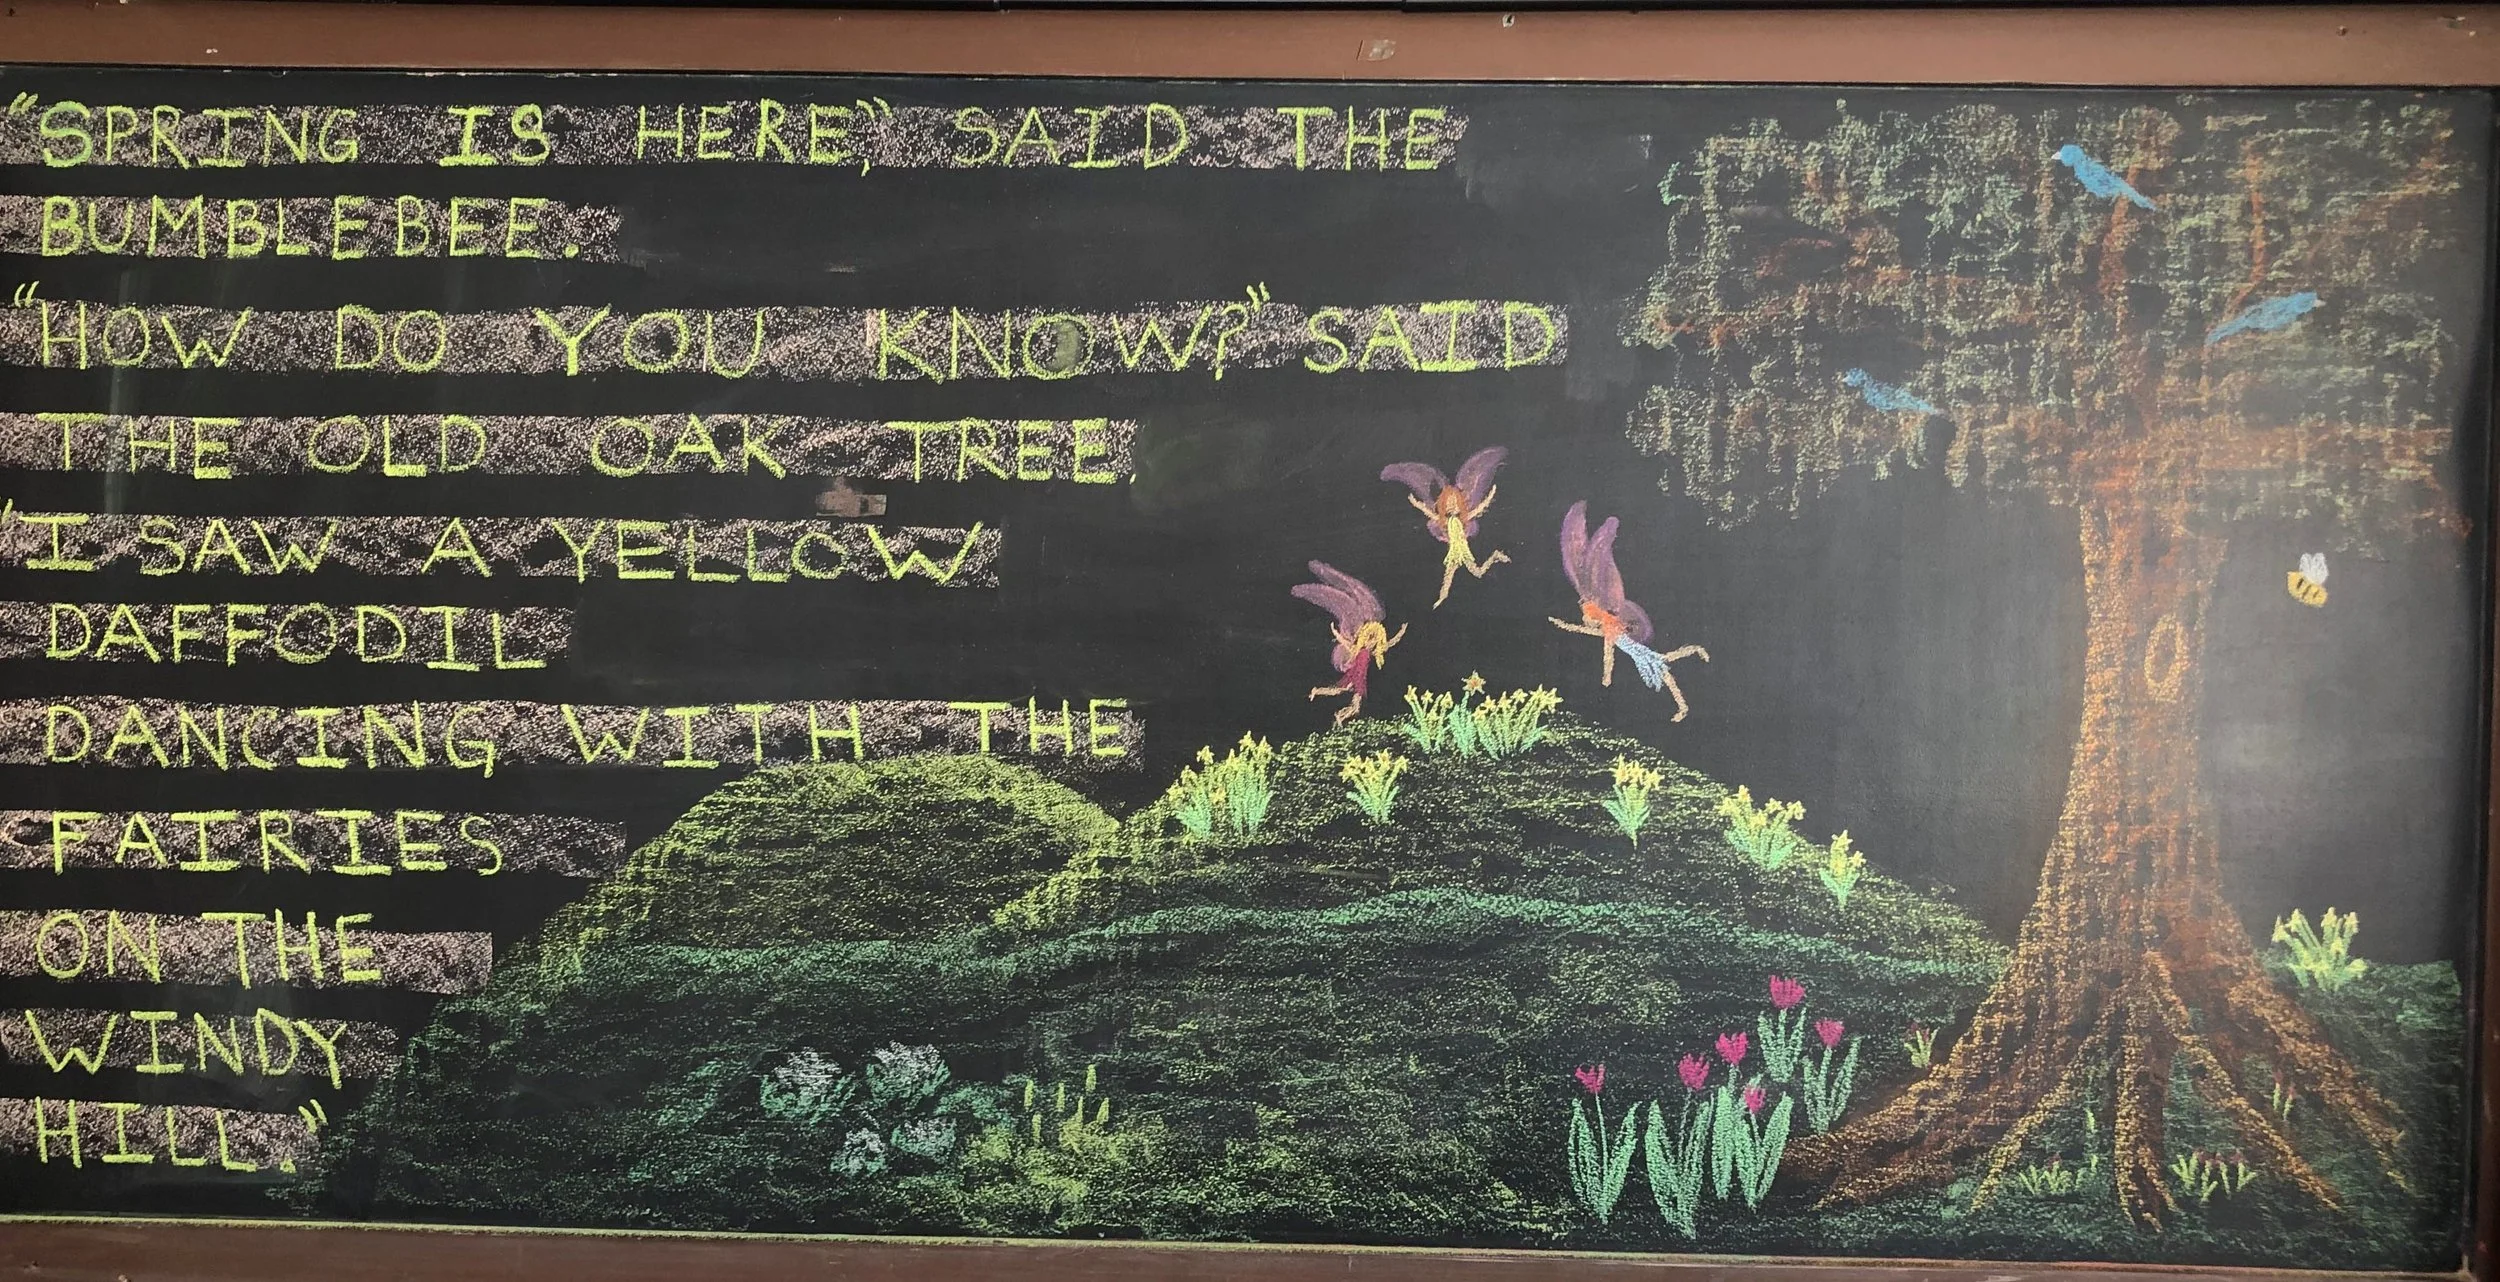 "SPRING IS HERE," SAID THE
BUMBLEBEE.
"HOW DO YOU KNOW?" SAID
THE OLD OAK TREE.
"I SAW A YELLOW
DAFFODIL
DANCING WITH THE
FAIRIES
ON THE
WINDY
HILL."